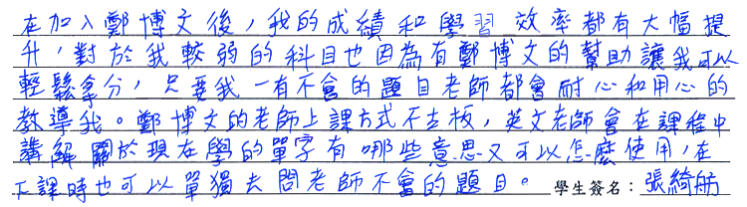 在加入鄭博文後，我的成績和學習效率都有大幅提
升，對於我較弱的科目也因為有鄭博文的幫助讓我可以
輕鬆拿分，只要我一有不會的題目老師都會耐心和用心的
教導我。鄭博文的老師上課方式不古板，英文老師會在課程中
講解關於現在學的單字有哪些意思又可以怎麼使用，在
下課時也可以單獨去問老師不會的題目。 學生簽名：張綺舫